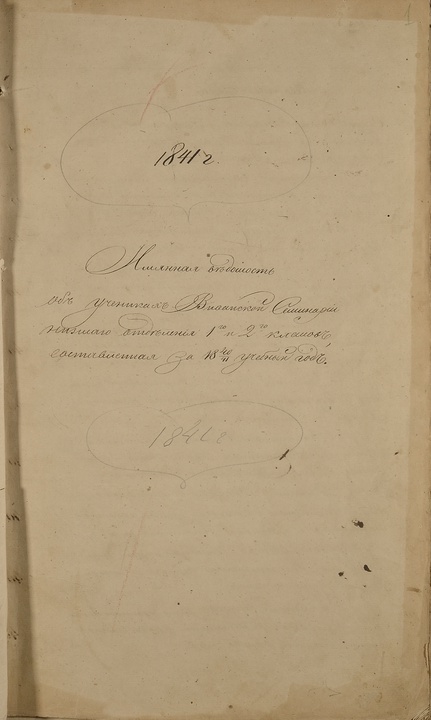 1841 г.
Имянная вѣдомость
объ ученикахъ Виѳанской Семинарии
низшаго отдѣленія 1го и 2го классовъ,
составленная за 18 40/41 учебный годъ.
1841 г